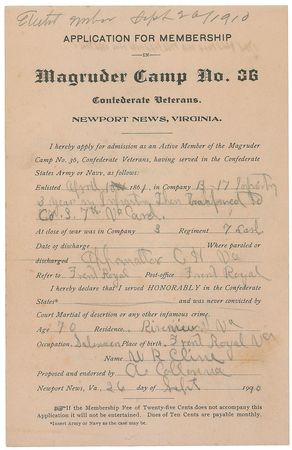 Elected member Sept 20/1910
APPLICATION FOR MEMBERSHIP
IN
Magruder Camp No. 36
Confederate Veterans.
NEWPORT NEWS, VIRGINIA.
I hereby apply for admission as an Active Member of the Magruder
Camp No. 36, Confederate Veterans, having served in the Confederate
States Army or Navy, as follows:
Enlisted April 1861, in Company B-17 Infantry
3 year in Infantry then transferred to
Co. 3. 7th Va Cav.
At close of war was in Company 3 Regiment 7 Cav.
Date of discharge Where paroled or
discharged Appomattox C. H. Va
Refer to Front Royal Post-office Front Royal
I hereby declare that I served HONORABLY in the Confederate
States* and was never convicted by
Court Martial of desertion or any other infamous crime.
Age 70 Residence Va
Occupation Salesman Place of birth Front Royal Va
Name W R Cline
Proposed and endorsed by
Newport News, Va., 26 day of Sept 1910
If the Membership Fee of Twenty-five Cents does not accompany this
Application it will not be entertained. Dues of Ten Cents are payable monthly.
*Insert Army or Navy as the case may be.